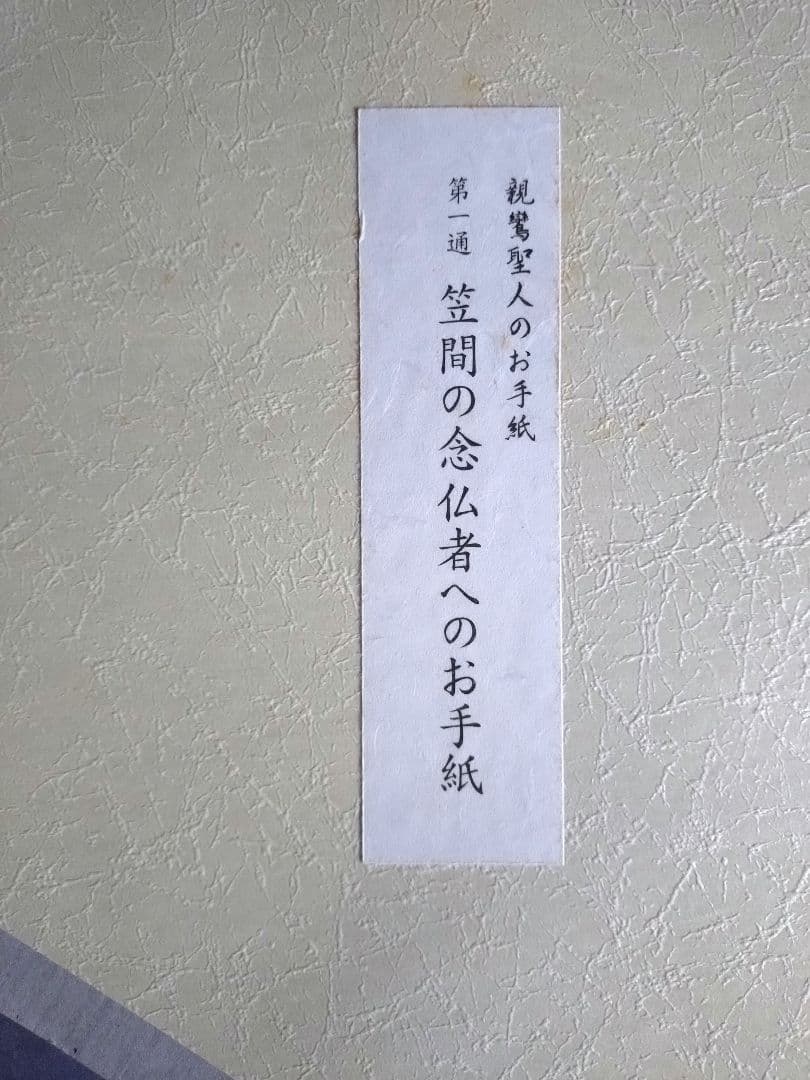 親鸞聖人のお手紙
第一通 笠間の念仏者へのお手紙